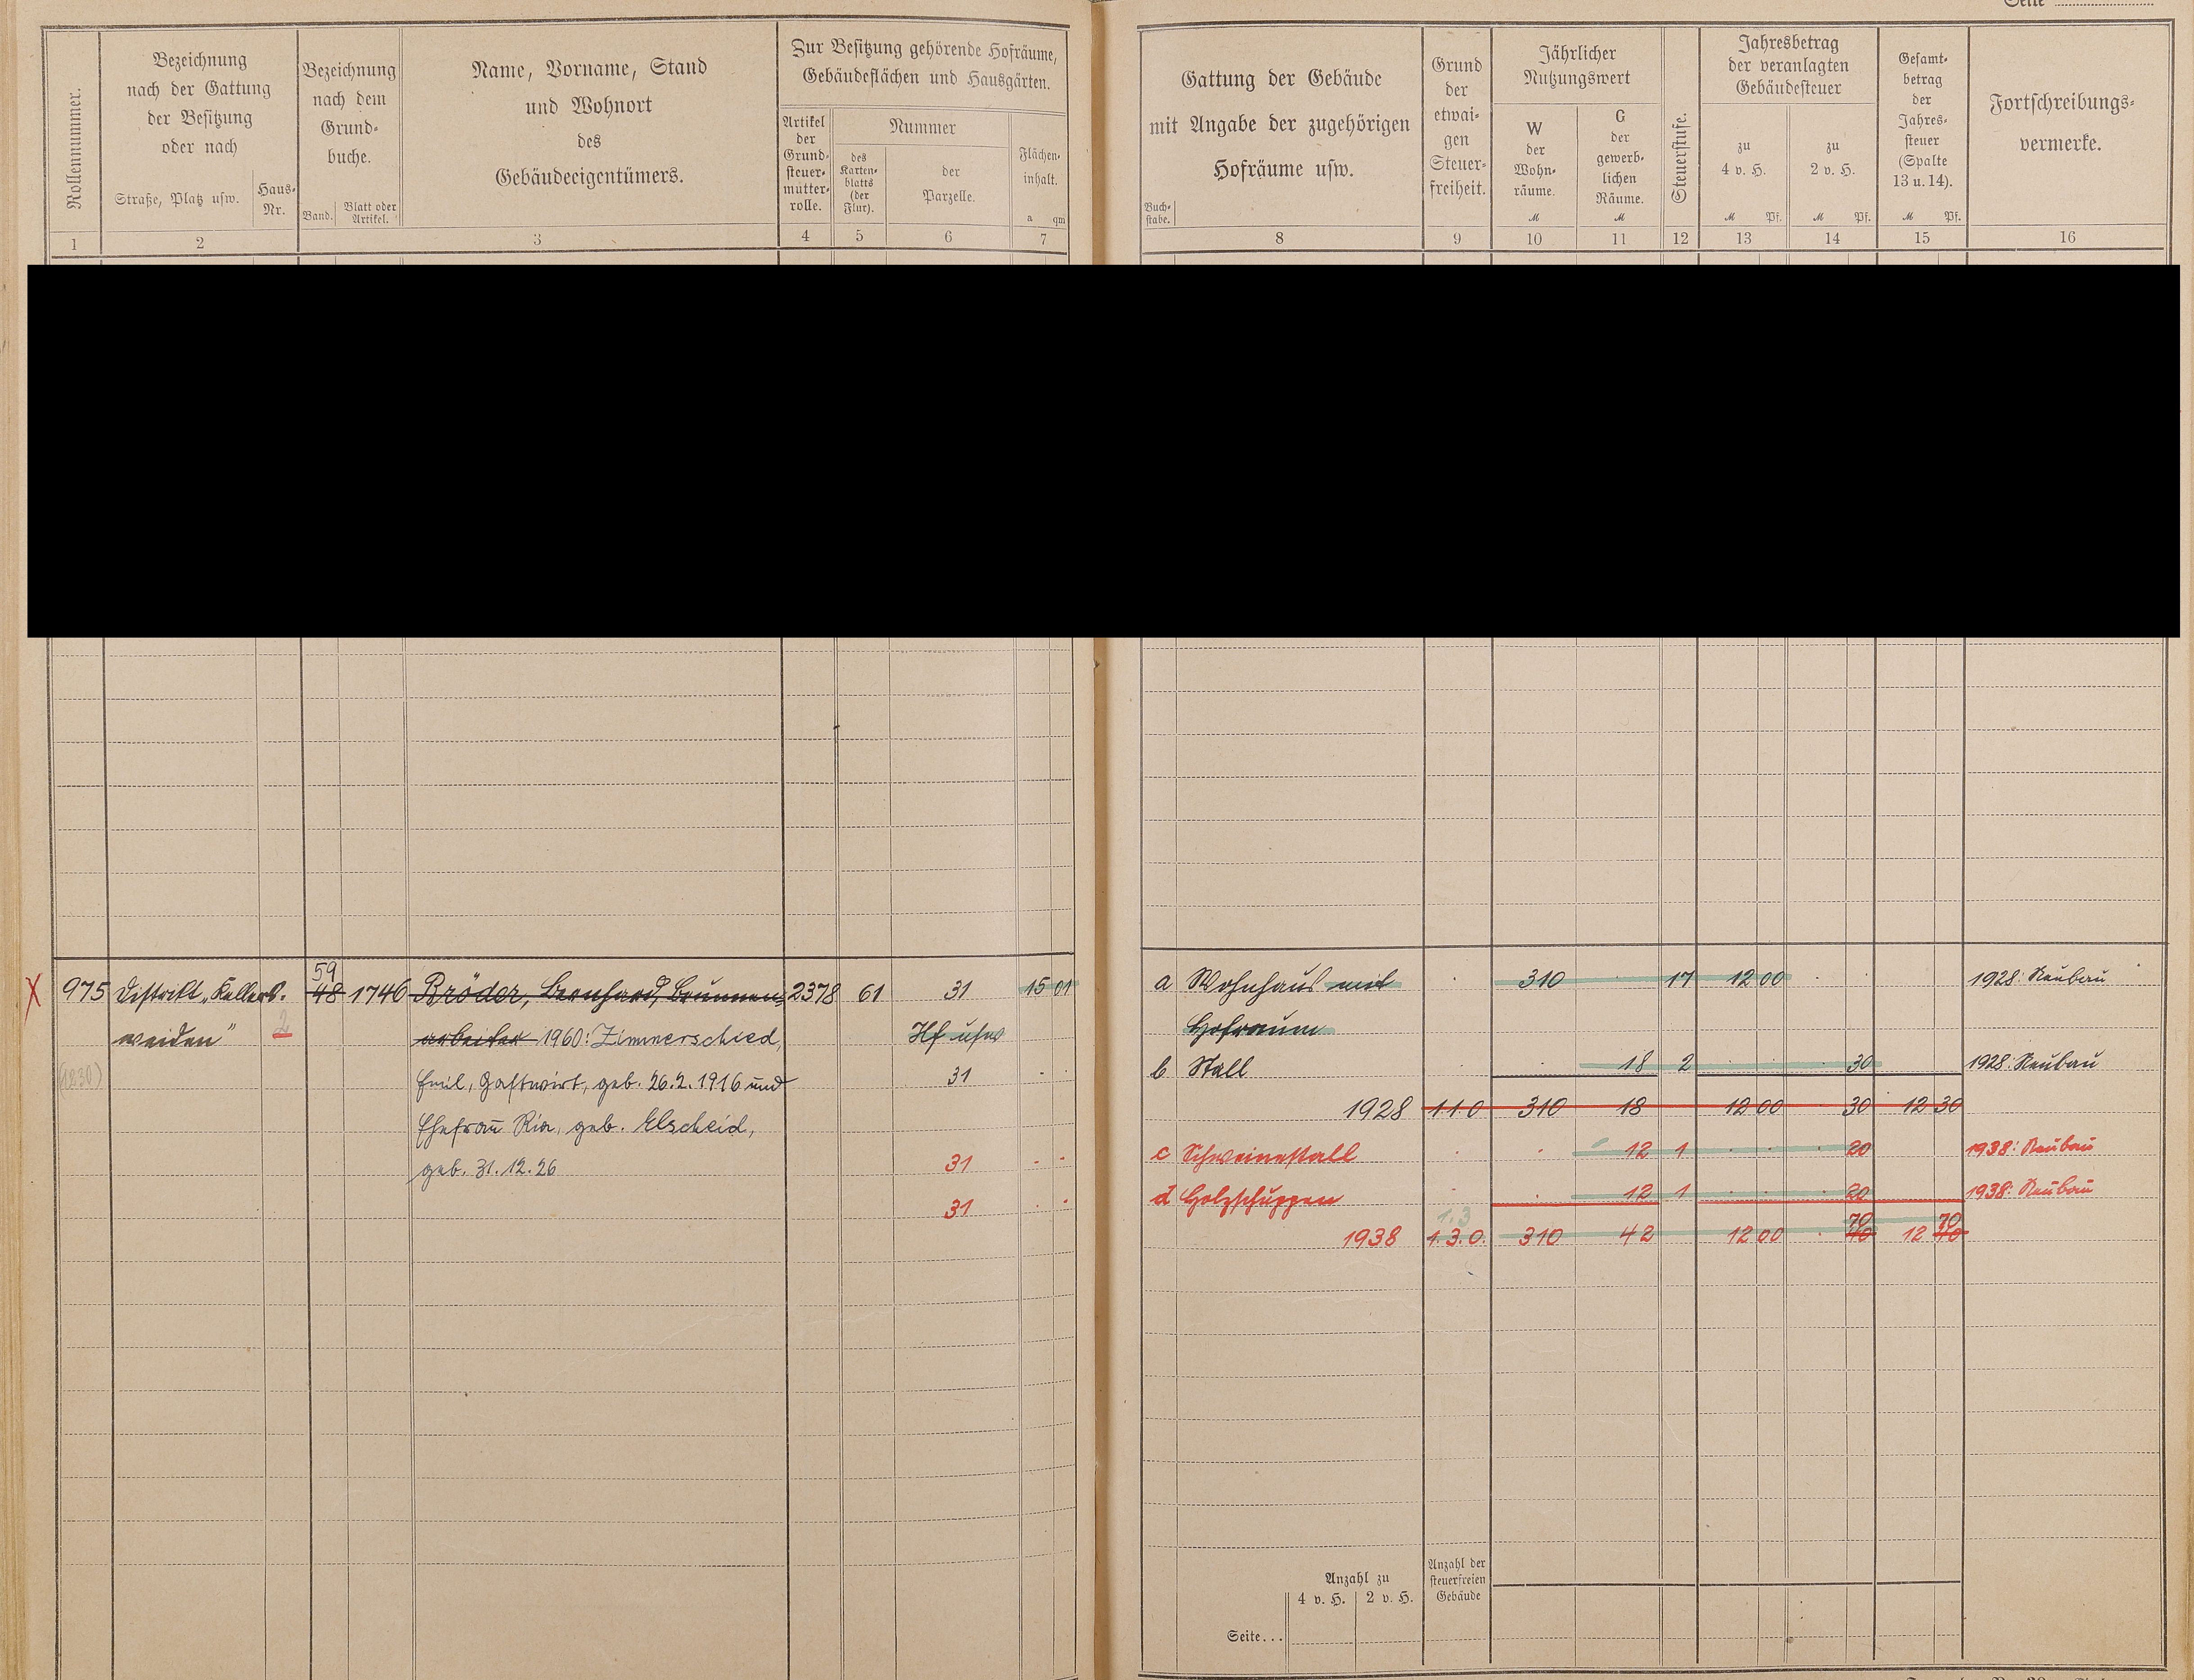 Seite
Rollennummer.
Bezeichnung
nach der Gattung
der Besitzung
oder nach
Straße, Platz usw.
Haus-
Nr.
Bezeichnung
nach dem
Grund-
buche.
Band.
Blatt oder
Artikel.
Name, Vorname, Stand
und Wohnort
des
Gebäudeeigentümers.
Zur Besitzung gehörende Hofräume,
Gebäudeflächen und Hausgärten.
Artikel
der
Grund-
steuer-
mutter-
rolle.
Nummer
des
Karten-
blatts
(der
Flur).
der
Parzelle.
Flächen-
inhalt.
a qm
1 2 3 4 5 6 7
Gattung der Gebäude
mit Angabe der zugehörigen
Hofräume usw.
Buch-
stabe.
Grund
der
etwai-
gen
Steuer-
freiheit.
Jährlicher
Nutzungswert
W
der
Wohn-
räume.
M
G
der
gewerb-
lichen
Räume.
M
Steuerstufe.
Jahresbetrag
der veranlagten
Gebäudesteuer
zu
4 v. H.
M Pf.
zu
2 v. H.
M Pf.
Gesamt-
betrag
der
Jahres-
steuer
(Spalte
13 u. 14).
M Pf.
Fortschreibungs-
vermerke.
8 9 10 11 12 13 14 15 16
59
975 Distrikt „Kellers- 48 1746 Bröder, Bernhard, Brunnen- 2378 61 31 15 01
weiden" 2 arbeiter 1960: Zimmerschied, Hf usw
Emil, Gastwirt, geb. 26.2.1916 und 31
Ehefrau Ria, geb. Elscheid,
geb. 31.12.26 31
31
a Wohnhaus mit 310 17 12 00 1928: Neubau
Hofraum
b Stall 18 2 30 1928: Neubau
1928 1.1.0 310 18 12 00 30 12 30
c Schweinestall 12 1 20 1938: Neubau
d Holzschuppen 12 1 20 1938: Neubau
1.3 70 70
1938 1.3.0. 310 42 12 00 40 12 40
Anzahl zu
4 v. H. 2 v. H.
Anzahl der
steuerfreien
Gebäude
Seite...